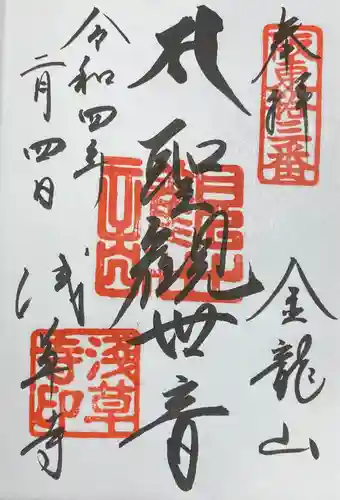 奉拝
坂東第十三番
金龍山
聖観世音
令和四年
二月四日
浅草寺
浅草寺印